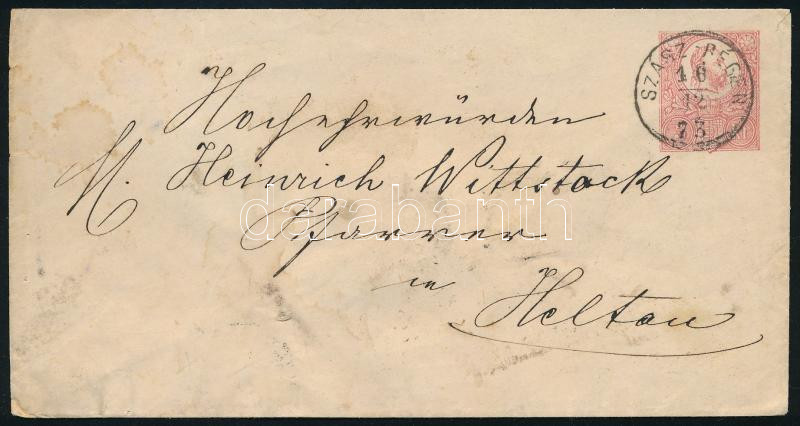 SZÁSZ-RÉGEN
16
12
73
Hochehrwürden
H. Heinrich Wittstock
Pfarrer
in
Heltau
darabanth